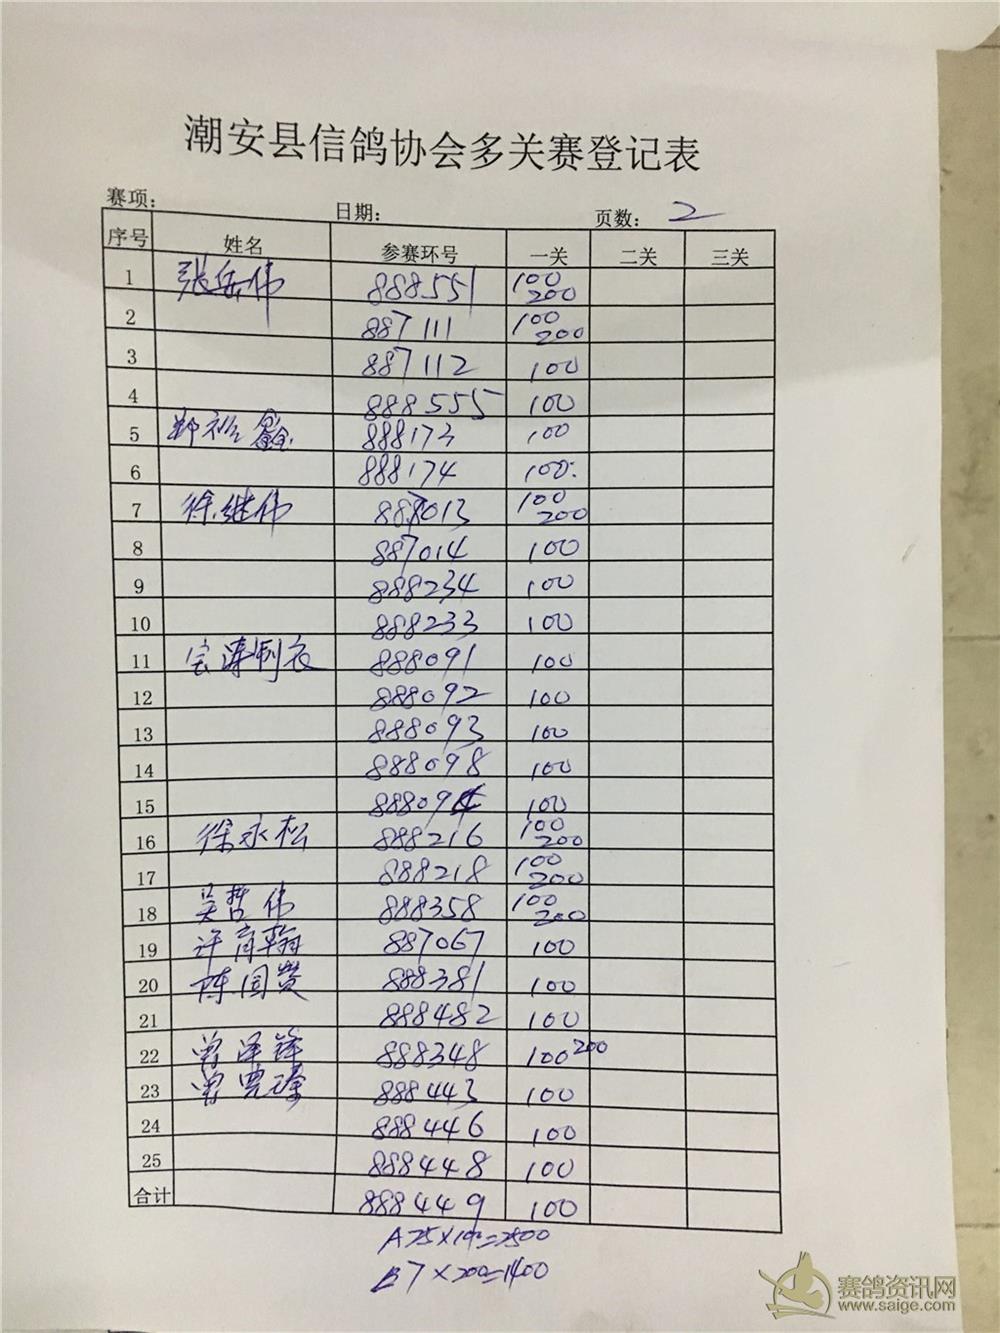 潮安县信鸽协会多关赛登记表
赛项: 日期: 页数: 2
序号 姓名 参赛环号 一关 二关 三关
1 张岳伟 888551 100 200
2 887111 100 200
3 887112 100
4 888555 100
5 郑裕鑫 888173 100
6 888174 100
7 徐继伟 887013 100 200
8 887014 100
9 888234 100
10 888233 100
11 宝涛制衣 888091 100
12 888092 100
13 888093 100
14 888098 100
15 888094 100
16 徐永松 888216 100 200
17 888218 100 200
18 吴哲伟 888358 100 200
19 许育翰 887067 100
20 陈国赞 888381 100
21 888482 100
22 曾泽锋 888348 100 200
23 曾 888443 100
24 888446 100
25 888448 100
合计 888449 100
A 25×100=2500
B 7×200=1400
赛鸽资讯网
www.saige.com